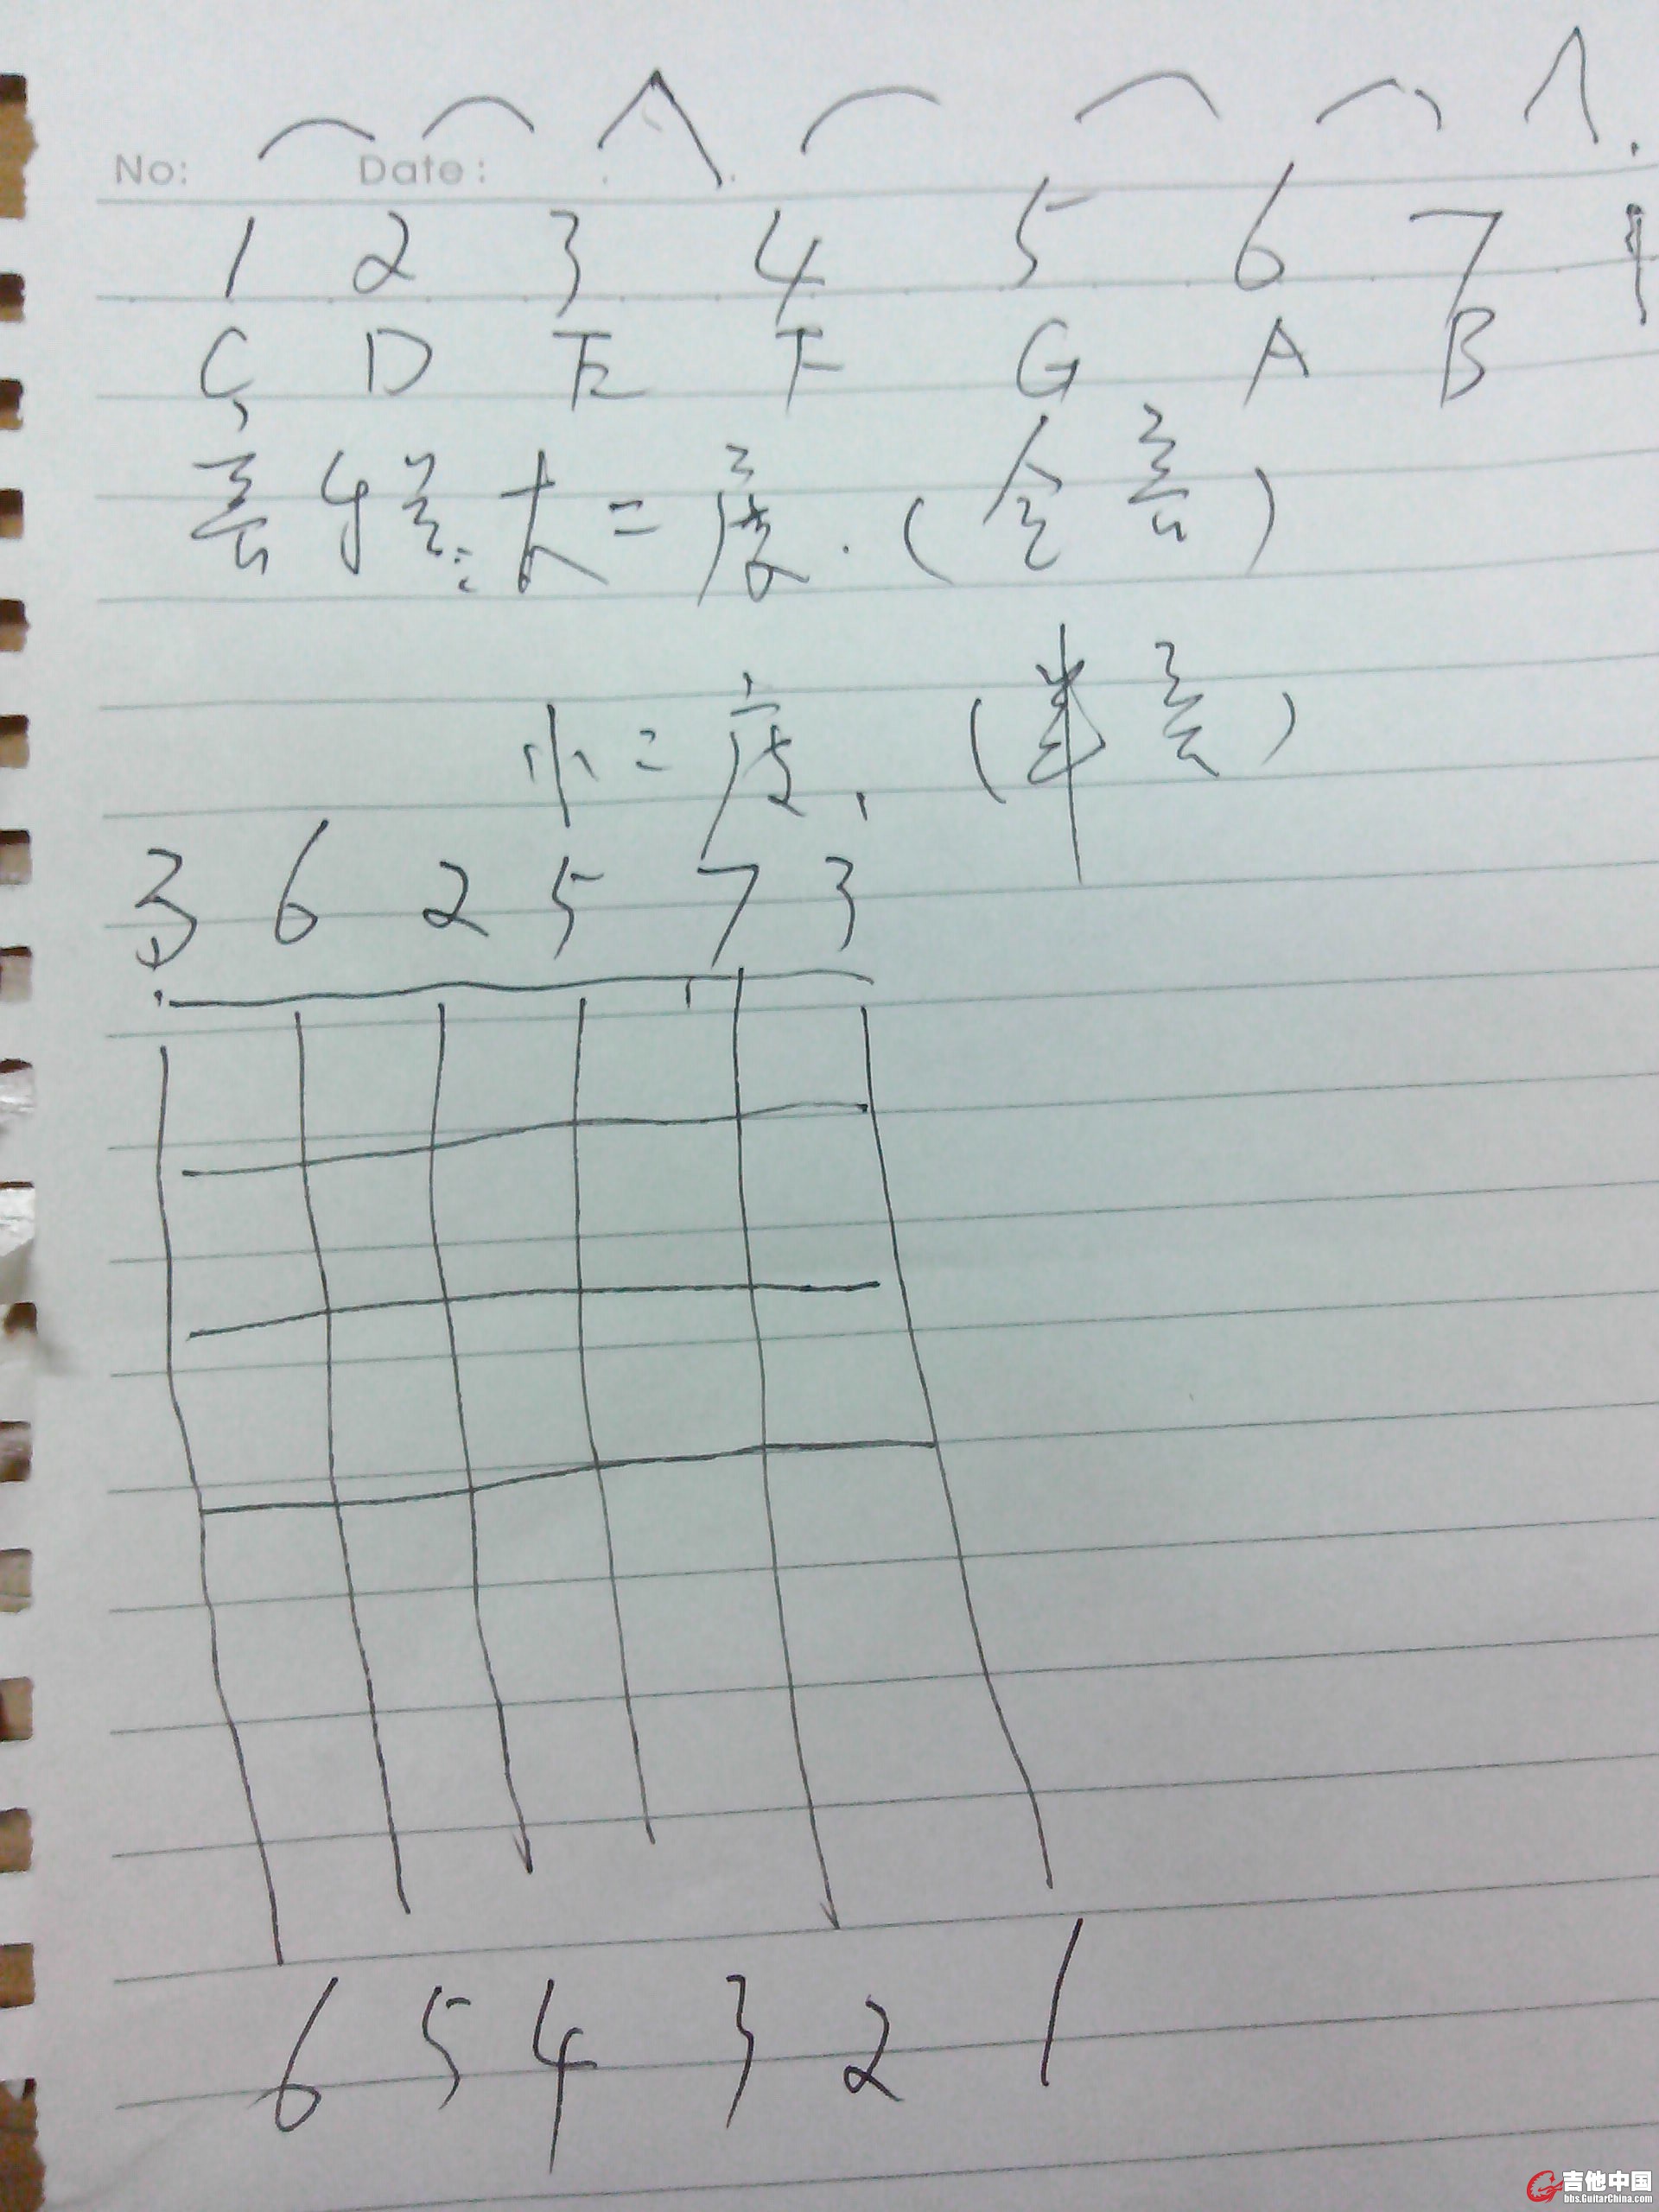 No: Date:
1 2 3 4 5 6 7 1
C D E F G A B
音与差:大二度.(全音)
小二度,(半音)
3 6 2 5 7 3
6 5 4 3 2 1
吉他中国
bbs.GuitarChina.com